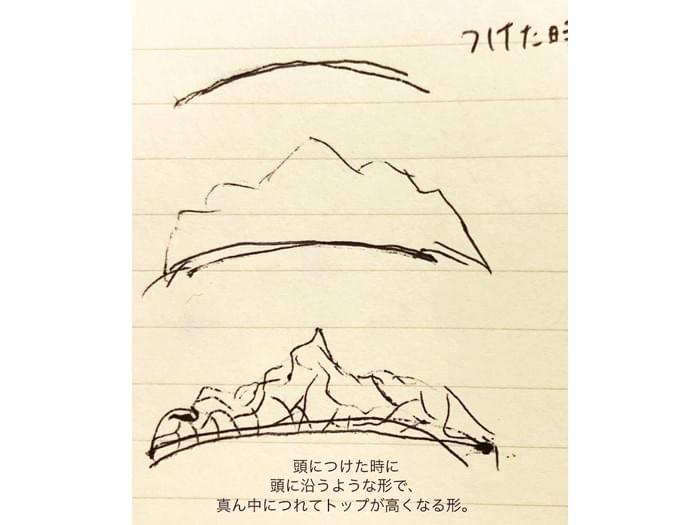 つけた時
頭につけた時に
頭に沿うような形で、
真ん中につれてトップが高くなる形。